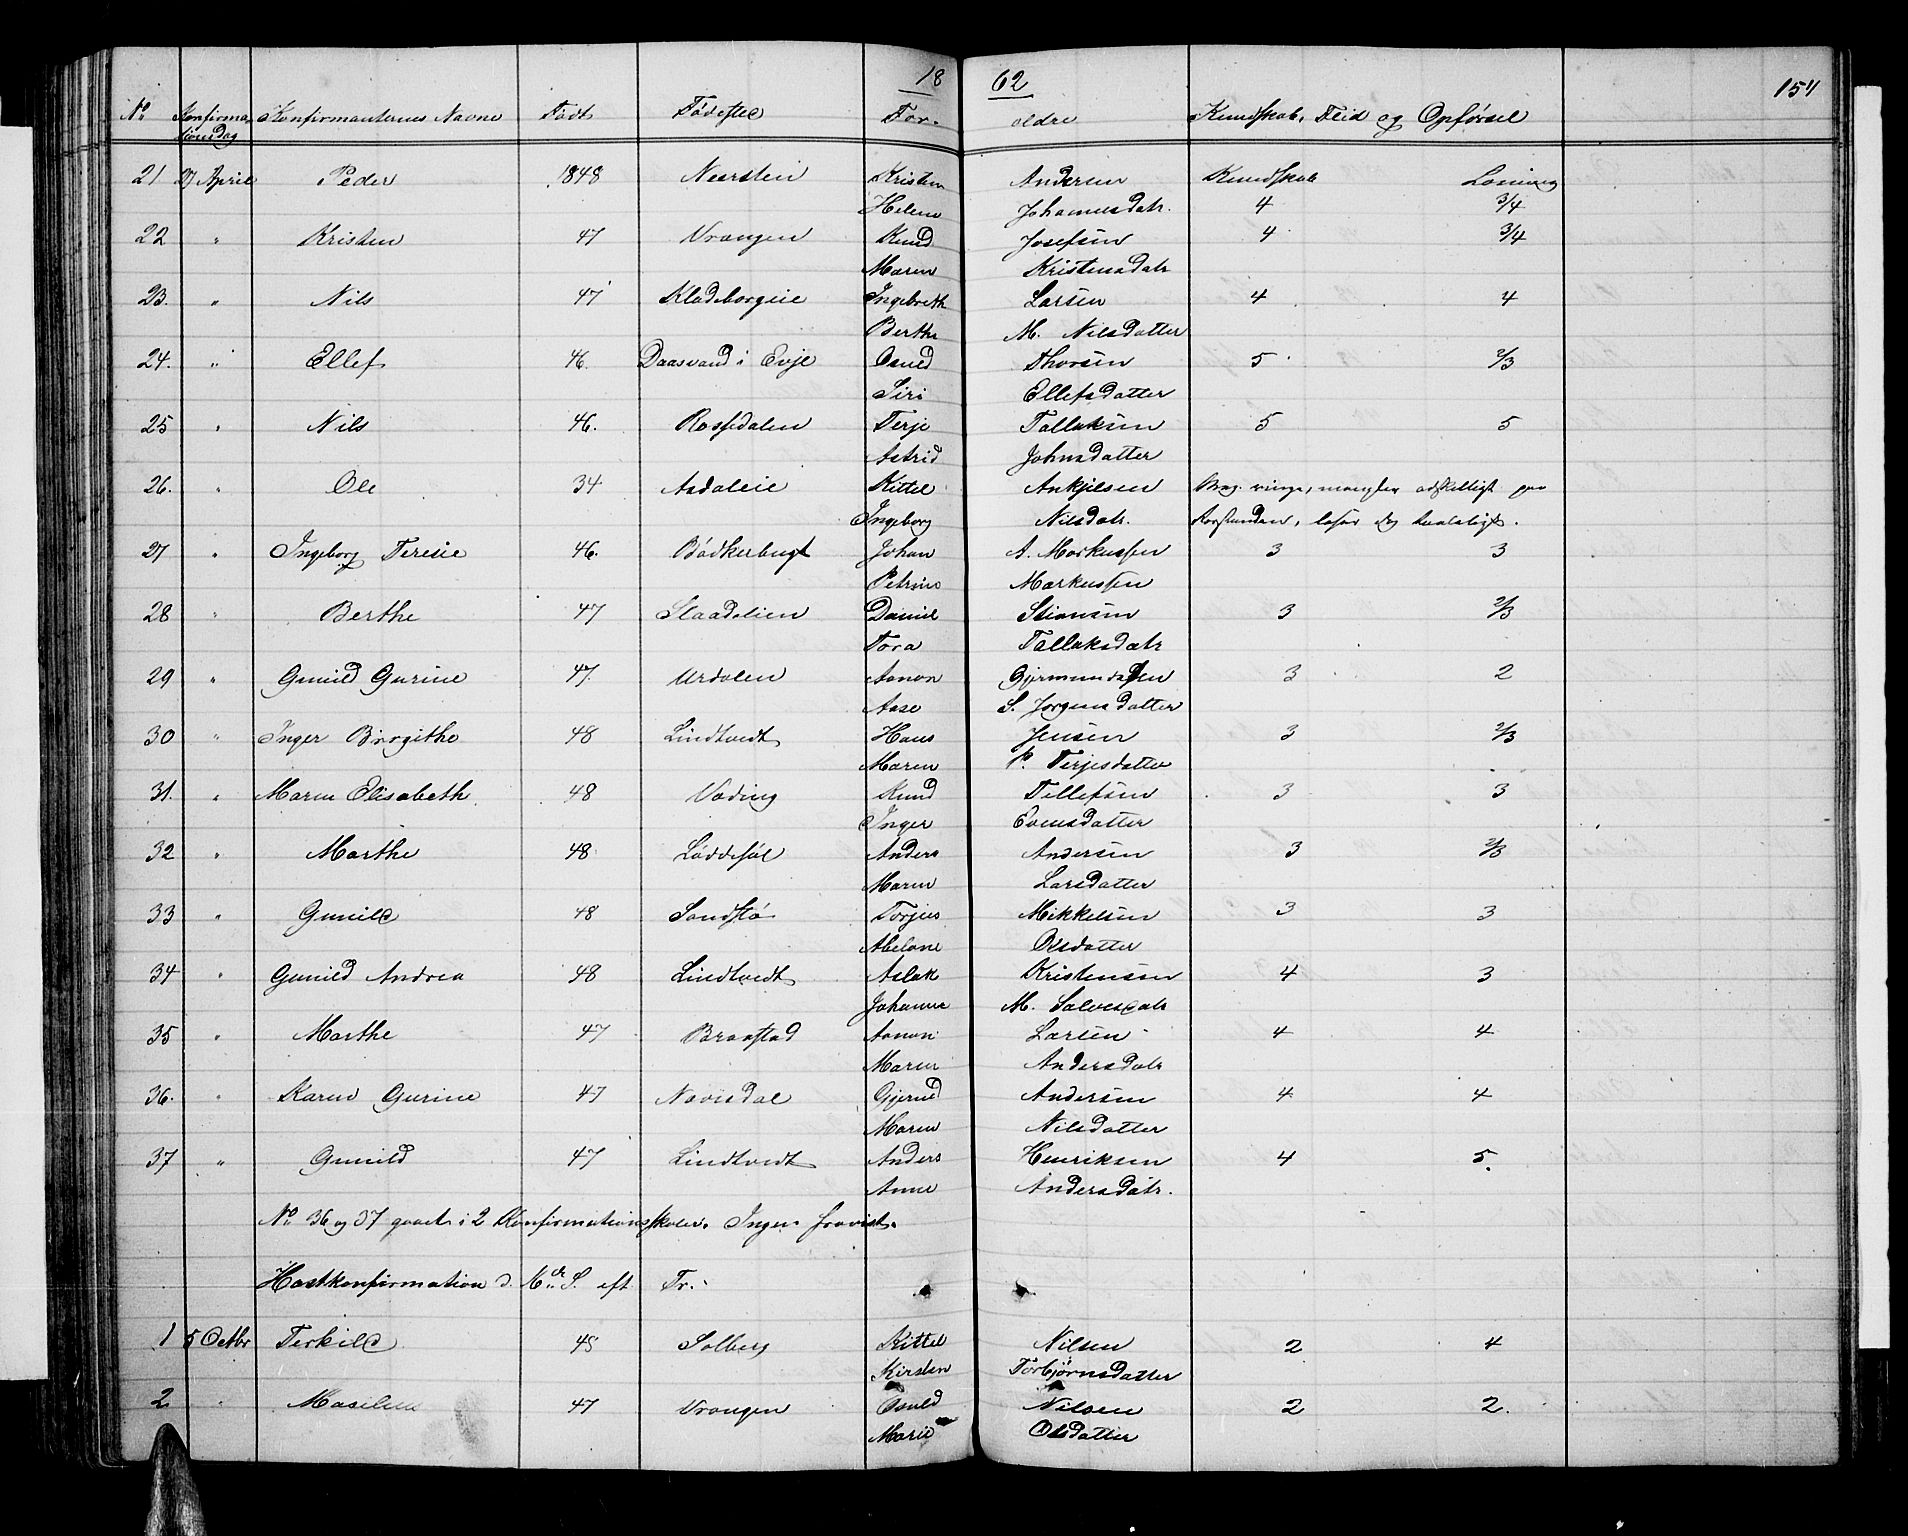 18 62 154
No Konfirma Konfirmanternes Navne Født Fødested For- ældre Kundskab, Flid og Opførsel
tionsdag
21 27 April Peder 1848 Neersten Kristen Andersen Kundskab Læsning
Helene Johannesdatr. 4 3/4
22 " Kristen 47 Vrangen Knud Josefsen 4 3/4
Maren Kristensdatr
23. " Nils 47 Kladeborgeie Ingebreth Larsen 4 4
Berthe M. Nilsdatter
24. " Ellef 46. Daasvand i Evje Osuld Thorsen 5 2/3
Siri Ellefsdatter
25 " Nils 46. Rossedalen Terje Tallaksen 5 5
Astrid Johnsdatter
26. " Ole 34 Asdaleie Kittel Ankjelsen ringe, mangler adskilligt paa
Ingeborg Nilsdatr. Forstanden, læser dog taaleligt.
27 " Ingeborg Teresie 46. Bødkerbugt Johan A. Markussen 3 3
Petrine Markussen
28 " Berthe 47 Slaadalien Daniel Stiansen 3 2/3
Tora Tallaksdatr
29 " Gunild Gurine 47. Urdalen Aanon Gjermundsen 3 2
Aase S. Jørgensdatter
30 " Inger Birgithe 48 Lindtvedt Hans Jensen 3 2/3
Maren P. Terjesdatter
31. " Maren Elisabeth 48 Voding Knud Tellefsen 3 3
Inger Evensdatter
32 " Marthe 48 Løddesøl Anders Andersen 3 2/3
Maren Larsdatter
33 " Gunild 48 Sandstø Torjus Mikkelsen 3 3
Abelone Olsdatter
34 " Gunild Andrea 48 Lindtvedt Aslak Kristensen 4 3
Johanne M. Salvesdatr
35 " Marthe 47 Braastad Aanon Larsen 4 4
Maren Andersdatr
36. " Karen Gurine 47 Navisdal Gjerud Andersen 4 4
Maren Nilsdatter
37 " Gunild 47 Lindtvedt Anders Henriksen 4 5.
Anne Andersdatr.
No 36 og 37 gaaet i 2 Konfirmationsskoler. Ingen fravist.
Høstkonfirmation d. 16de S. eft Tr.
1 5 Octbr Terkild 48 Solberg Kittel Nilsen 2 4
Kirsten Torbjørnsdatter
2 " 47 Vrangen Osuld Nilsen 2 2.
Marie Olsdatter